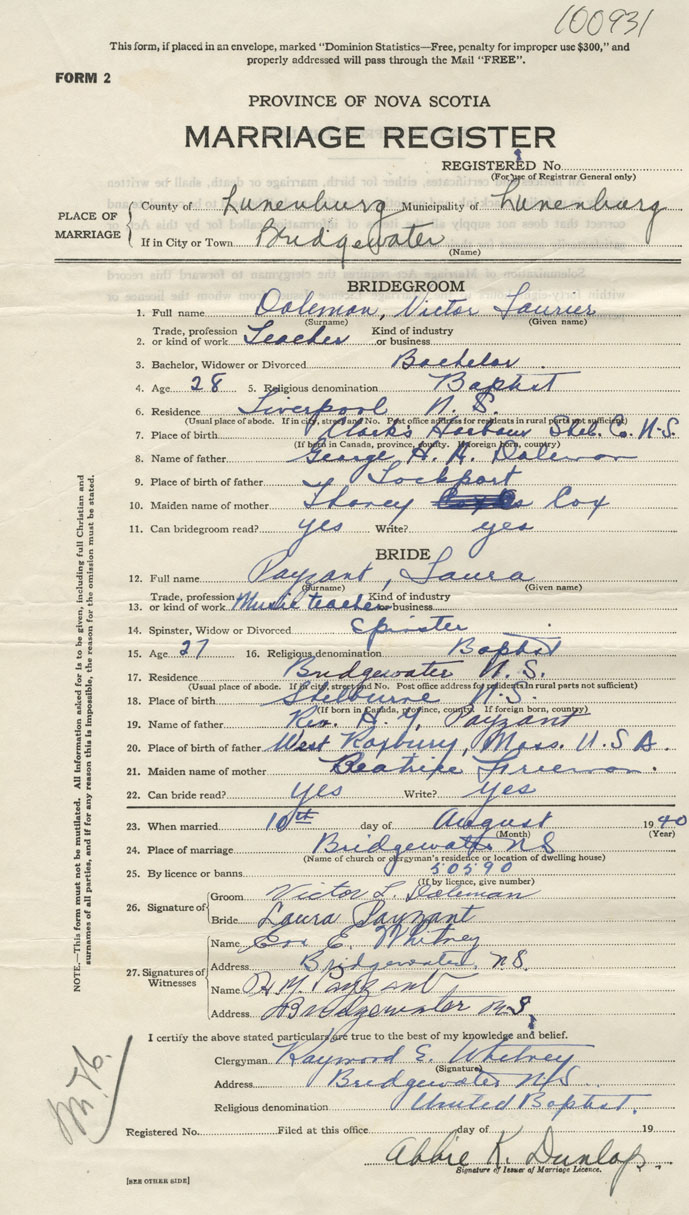 100931
This form, if placed in an envelope, marked "Dominion Statistics—Free, penalty for improper use $300," and
properly addressed will pass through the Mail "FREE".
FORM 2
PROVINCE OF NOVA SCOTIA
MARRIAGE REGISTER
REGISTERED No.
(For use of Registrar General only)
PLACE OF MARRIAGE
County of Lunenburg Municipality of Lunenburg
If in City or Town Bridgewater
(Name)
BRIDEGROOM
1. Full name Doleman, Victor Laurier
(Surname) (Given name)
2. Trade, profession or kind of work Teacher Kind of industry or business
3. Bachelor, Widower or Divorced Bachelor
4. Age 28 5. Religious denomination Baptist
6. Residence Liverpool N.S.
(Usual place of abode. If in city, street and No. Post office address for residents in rural parts not sufficient)
7. Place of birth Clark's Harbour Shel. Co. N.S.
(If born in Canada, province, county. If foreign born, country)
8. Name of father George H. Doleman
9. Place of birth of father Lockport
10. Maiden name of mother Cox
11. Can bridegroom read? yes Write? yes
BRIDE
12. Full name Payzant, Laura
(Surname) (Given name)
13. Trade, profession or kind of work Music teacher Kind of industry or business
14. Spinster, Widow or Divorced Spinster
15. Age 27 16. Religious denomination Baptist
17. Residence Bridgewater N.S.
(Usual place of abode. If in city, street and No. Post office address for residents in rural parts not sufficient)
18. Place of birth Shelburne N.S.
(If born in Canada, province, county. If foreign born, country)
19. Name of father Rev. H. Y. Payzant
20. Place of birth of father West Roxbury, Mass. U.S.A.
21. Maiden name of mother Beatrice Freeman
22. Can bride read? yes Write? yes
23. When married 10th day of August 1940
(Month) (Year)
24. Place of marriage Bridgewater NS
(Name of church or clergyman's residence or location of dwelling house)
25. By licence or banns 50590
(If by licence, give number)
26. Signature of
Groom Victor L. Doleman
Bride Laura Payzant
27. Signatures of Witnesses
Name E. Whitney
Address Bridgewater, N.S.
Name H M. Payzant
Address Bridgewater N.S.
I certify the above stated particulars are true to the best of my knowledge and belief.
Clergyman Raymond E. Whitney
(Signature)
Address Bridgewater N.S.
Religious denomination United Baptist.
Registered No. Filed at this office day of 19
Abbie K. Dunlap
Signature of Issuer of Marriage Licence.
[SEE OTHER SIDE]
NOTE.—This form must not be mutilated. All information asked for is to be given, including full Christian and
surnames of all parties, and if for any reason this is impossible, the reason for the omission must be stated.